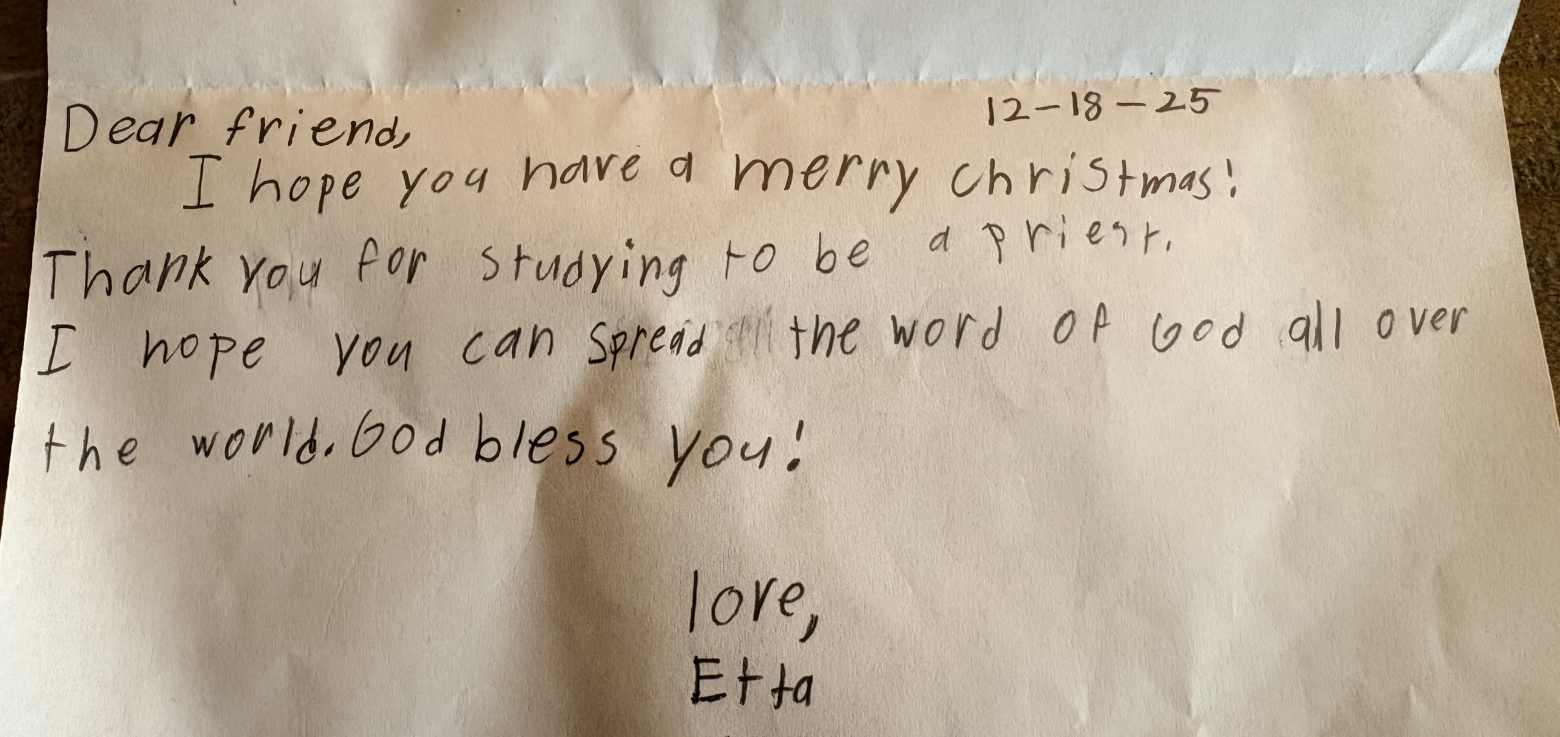 12-18-25
Dear friend,
I hope you have a merry christmas!
Thank you for studying to be a priest.
I hope you can spread the word of God all over
the world. God bless you!
love,
Etta